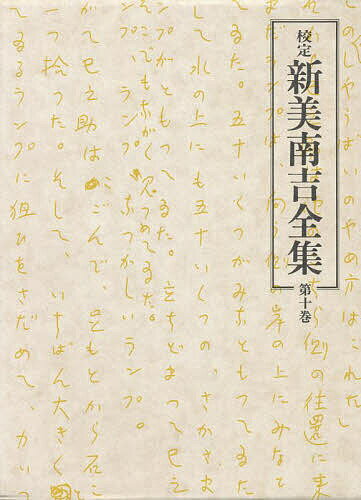 校定
新美南吉全集
第十巻
このしやうばいのやめ方はこれだ
ら側の往還に来
岸の上にみな
てゐた。五十いくつがみ
して水の上にも五十いくつの、さかさま
ンプがともつてゐた。立ちどまつて巳之
そこでもながく見つめてゐた。
ランプ、ランプ、なつかしいランプ。
がて巳之助はかがんで、足もとから石こ
一つ拾つた。そして、いちばん大きく
てゐるランプに狙ひをさだめて、力いつ